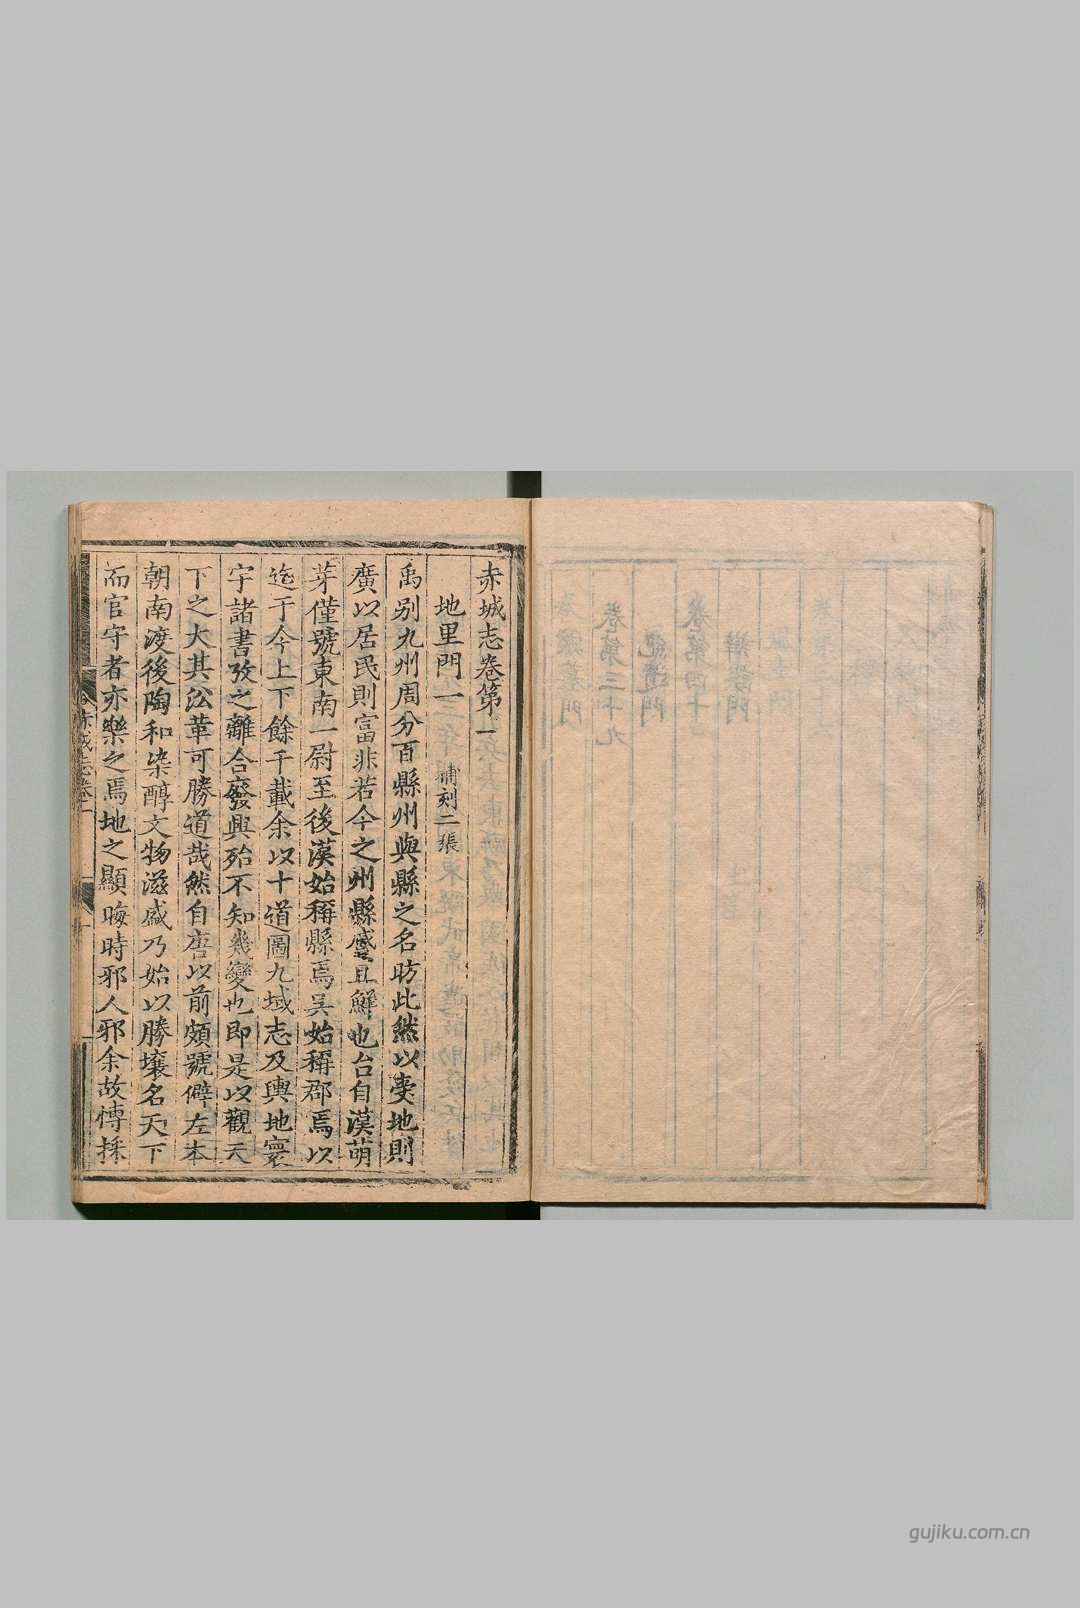 赤城志卷第一
地里門一 補刻二張
禹别九州周分百縣州與縣之名昉此然以表地則
廣以居民則富非若今之州縣盛且鮮也台自漢萌
芽僅號東南一尉至後漢始稱縣焉吴始稱郡焉以
迄于今上下餘千載余以十道圖九域志及輿地寰
宇諸書攷之離合廢興殆不知幾變也即是以觀天
下之大其㳂革可勝道哉然自唐以前頗號僻左本
朝南渡後陶和染醇文物滋盛乃始以勝壤名天下
而官守者亦樂之焉地之顯晦時邪人邪余故博採
赤城志卷一
gujiku.com.cn